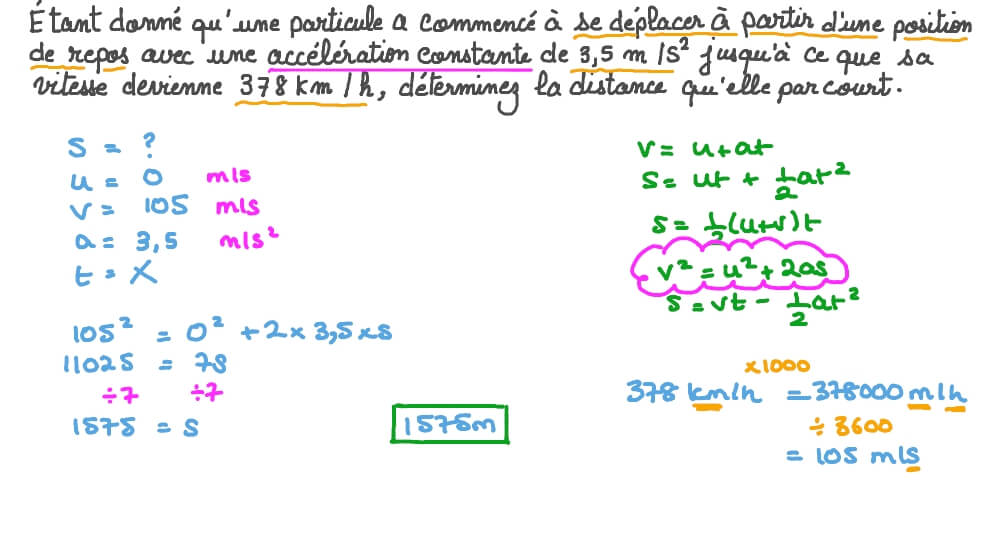 Étant donné qu'une particule a commencé à se déplacer à partir d'une position
de repos avec une accélération constante de 3,5 m/s² jusqu'à ce que sa
vitesse devienne 378 km/h, déterminez la distance qu'elle parcourt.
s = ?
u = 0 m/s
v = 105 m/s
a = 3,5 m/s²
t = X
105² = 0² + 2 × 3,5 × s
11025 = 7s
÷7 ÷7
1575 = s
1575m
v = u + at
s = ut + 1/2 at²
s = 1/2 (u+v)t
v² = u² + 2as
s = vt - 1/2 at²
×1000
378 km/h = 378000 m/h
÷ 3600
= 105 m/s